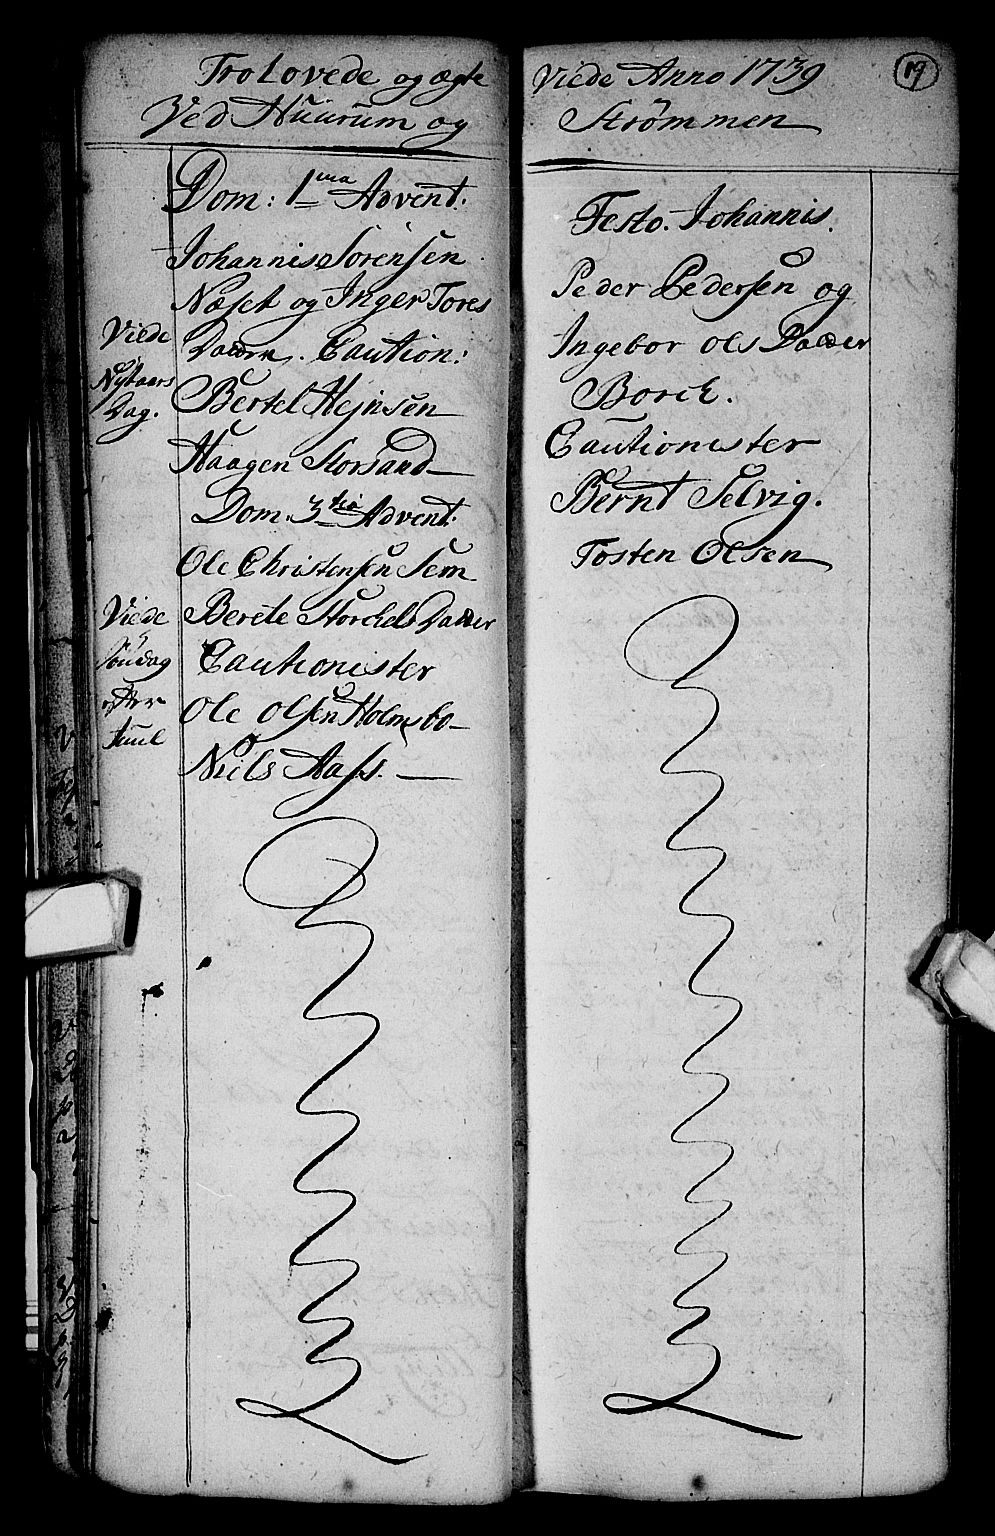 Trolovede og ægte
Ved Huurum og
Dom: 1ma Advent.
Johannis Sörensen
Næset og Inger Tores
Daatter. Caution:
Bertel Hejnsen
Haagen Storsand
Viede
Nytaars
Dag.
Dom. 3tia Advent.
Ole Christensen Sem
Berete Storchels Daatter
Cautionister
Ole Olsen Holmsbo
Niels Aass.
Viede
Söndag
efter
Juul
Viede Anno 1739
Strømmen
19
Festo. Johannis.
Peder Pedersen og
Ingebor Ols Daatter
Borch.
Cautionister
Bernt Selvig.
Tosten Olsen